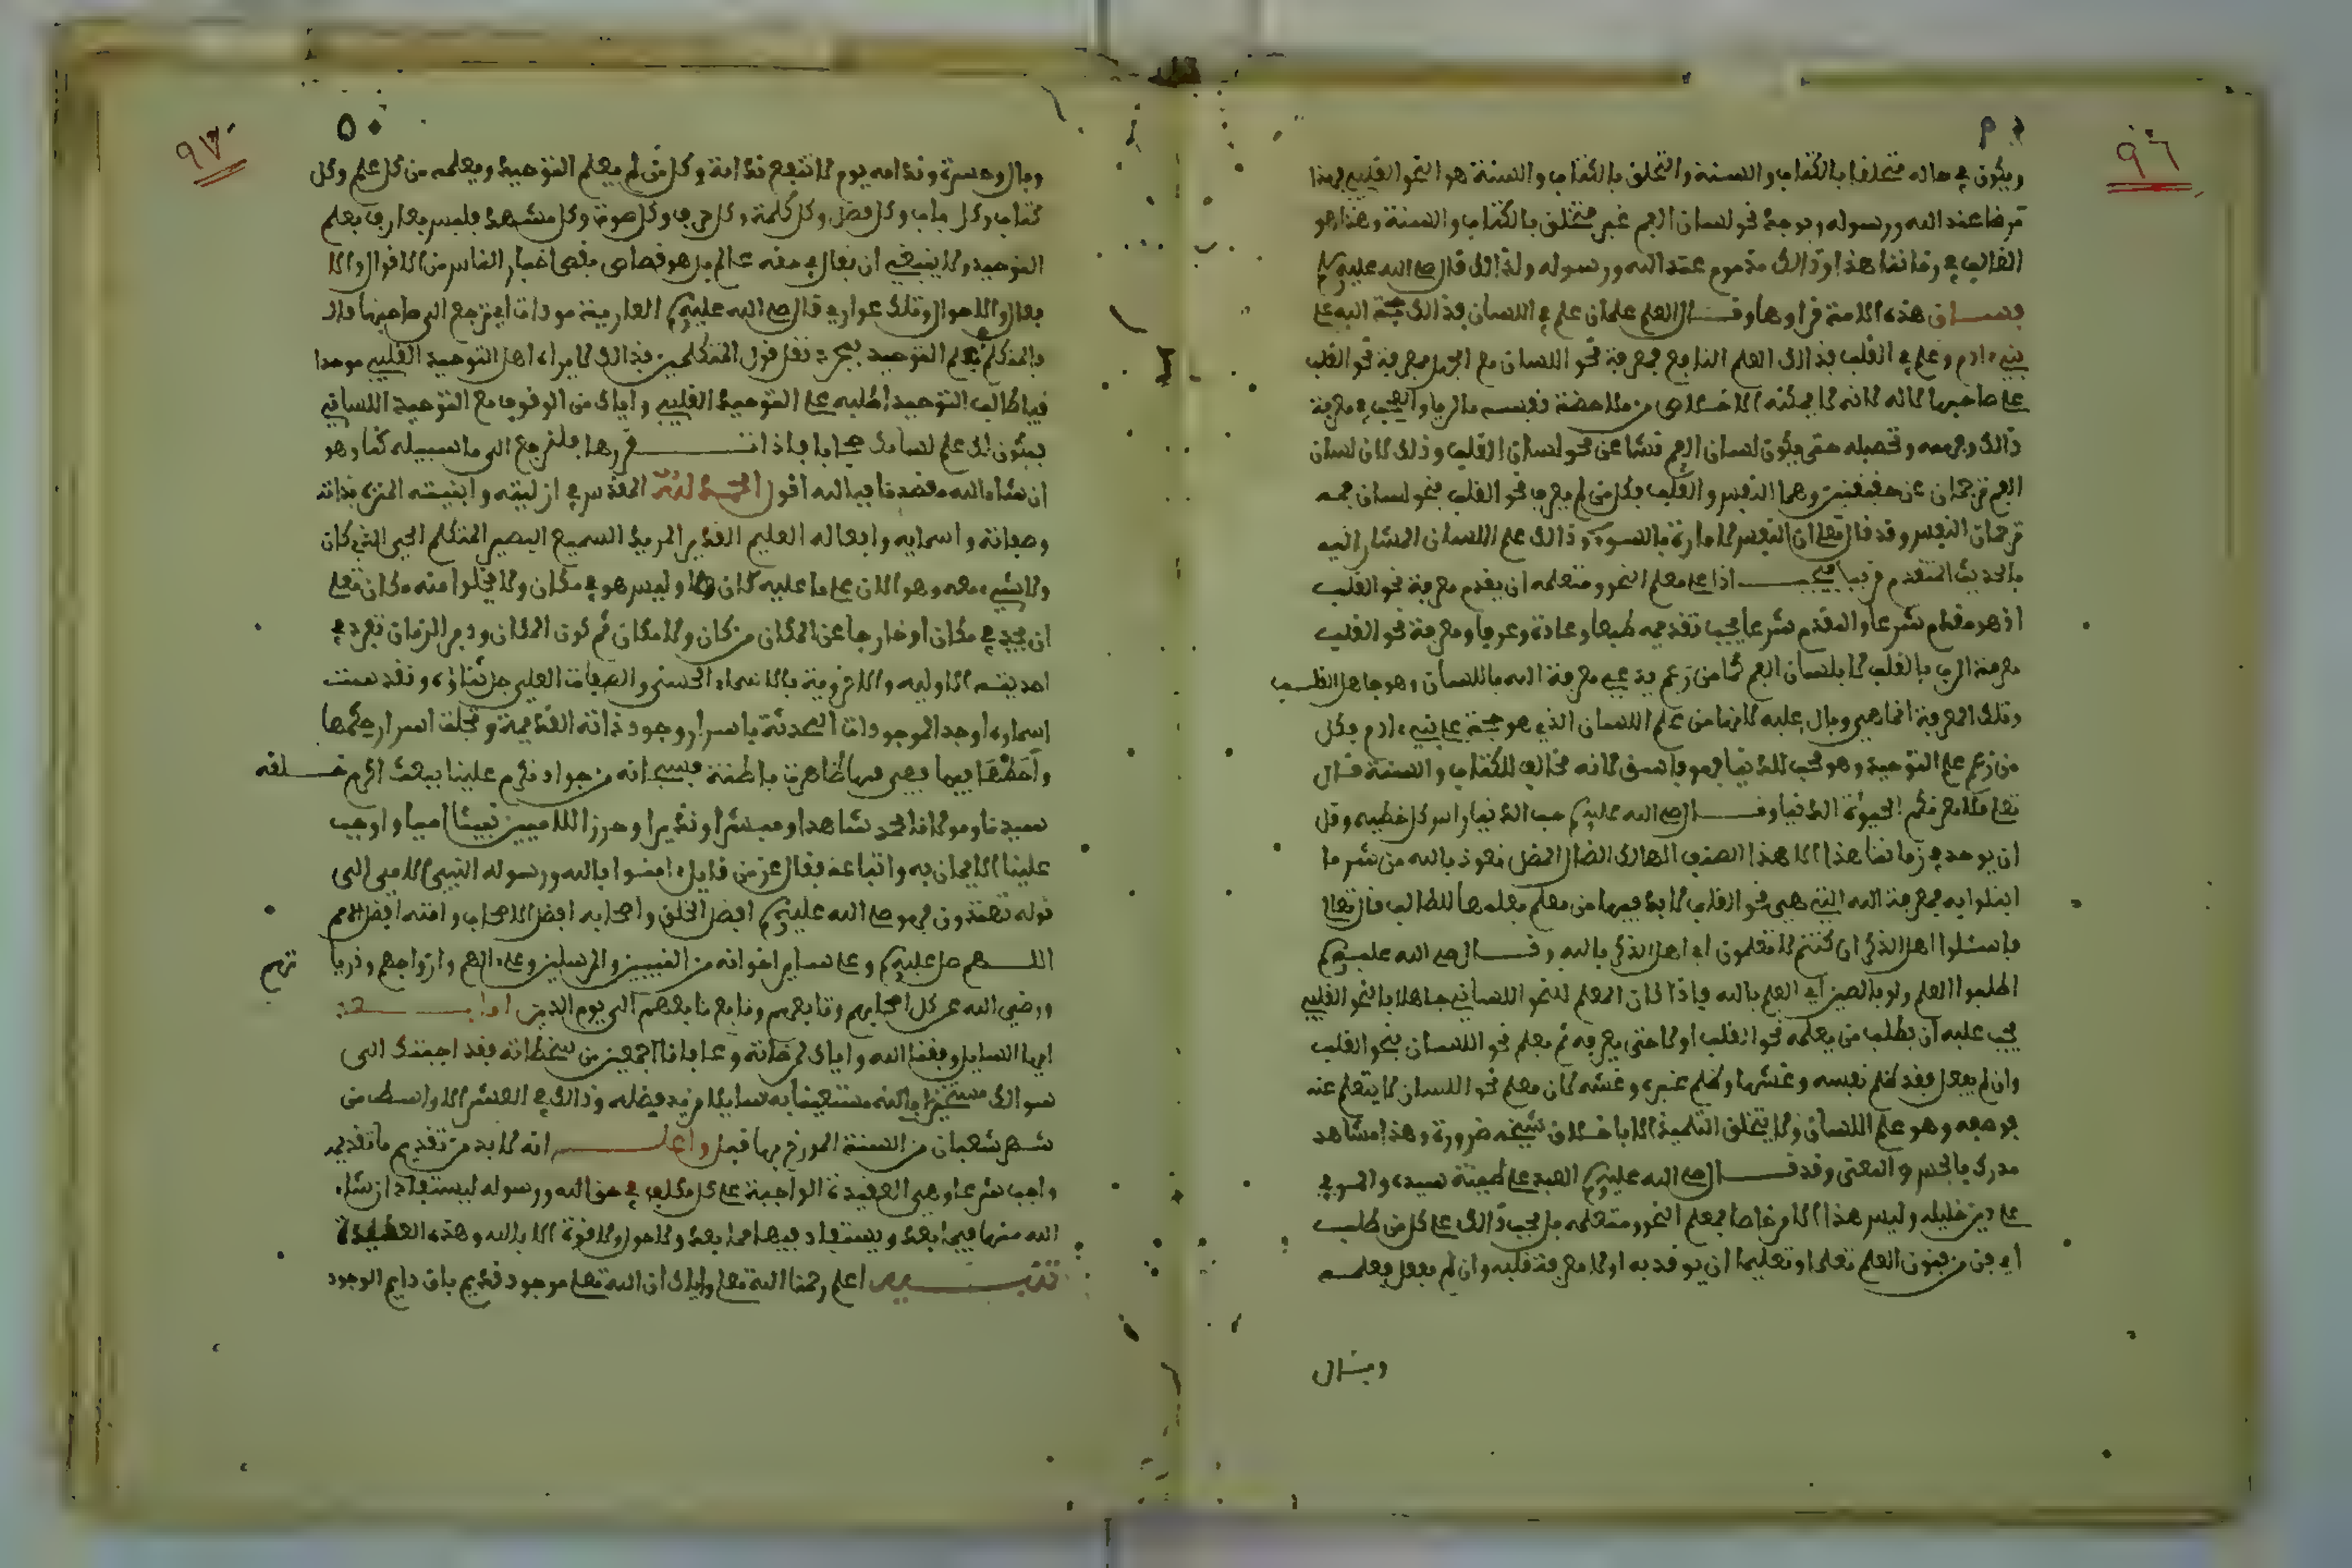 ٩٦
ويكون في حاله متخلقا بالكتاب والسنة والتخلق بالكتاب والسنة هو النحو القلبي لهذا
عند الله ورسوله ويوجد نحو لسان الفم غير متخلق بالكتاب والسنة وهذا هو
الغالب في زماننا هذا وذالك مذموم عند الله ورسوله ولذالك قال صلى الله عليه وسلم
هذه الامة قراوها وقال العلم علمان علم في اللسان فذالك حجة الله على
بني ءادم وعلم في القلب فذالك العلم النافع فمعرفة نحو اللسان مع الجهل بمعرفة نحو القلب
على صاحبها لانه لا يمكنه الاخلاص من ملاحضة نفسه بالريا والعجب في معرفة
ذالك وفهمه وتحصيله حتى يكون لسان الفم نشا عن نحو لسان القلب وذلك لان لسان
الفم ترجمان عن حقيقتين وهما النفس والقلب فكل من لم يعرف نحو القلب فنحو لسان فمه
ترجمان النفس وقد قال تعلى ان النفس لامارة بالسوء وذالك علم اللسان المشار اليه
بالحديث المتقدم قريبا فيجب اذا على معلم النحو ومتعلمه ان يقدم معرفة نحو القلب
اذ هو مقدم شرعا والمقدم شرعا يجب تقديمه طبعا وعادة وعرفا ومعرفة نحو القلب
معرفة الرب بالقلب لا بلسان الفم فمن زعم يدعي معرفة الله باللسان وهو جاهل القلب
وتلك المعرفة انما هي وبال عليه لانها من علم اللسان الذي هو حجة على بني ءادم فكل
من زعم علم التوحيد وهو محب للدنيا فهو فاسق لانه مخالف للكتاب والسنة قال
تعلى فلا تغرنكم الحيوة الدنيا وقال صلى الله عليه وسلم حب الدنيا راس كل خطيه وقل
ان يوجد في زماننا هذا الا هذا الصنف الهالك الضال المضل نعوذ بالله من شر ما
ابتلوا به فمعرفة الله التي هي نحو القلب لا بد فيها من معلم يعلمها للطالب قال تعالى
فاسئلوا اهل الذكر ان كنتم لا تعلمون اي اهل الذكر بالله وقال صلى الله عليه وسلم
اطلبوا العلم ولو بالصين اي العلم بالله فاذا كان المعلم للنحو اللساني جاهلا بالنحو القلبي
يجب عليه ان يطلب من يعلمه نحو القلب اولا حتى يعرفه ثم يعلم نحو اللسان بنحو القلب
وان لم يفعل فقد ظلم نفسه وغشها وظلم غيره وغشه لان معلم نحو اللسان لا يتعلم عنه
وهو علم اللسان ولا يتخلق التلميذ الا باخلاق شيخه ضرورة وهذا مشاهد
مدرك بالحس والمعنى وقد قال صلى الله عليه وسلم العبد على طينة سيده والمرء
على دين خليله وليس هذا الامر خاصا بمعلم النحو ومتعلمه بل يجب ذالك على كل من طلب
اي فن من فنون العلم تعلما وتعليما ان يوخذ به اولا معرفة قلبه وان لم يفعل فعلمه
وبال
٩٧
٥٠
وبال وحسرة وندامه يوم لا تنفع ندامة وكل من لم يعلم التوحيد ويعلمه من كل علم وكل
كتاب وكل باب وكل فصل وكل كلمة وكل حرف وكل صوت وكل مشهد فليس بعارف بعلم
التوحيد ولا ينبغي ان يقال في حقه عالم بل هو قصاص يقص اخبار الناس من الاقوال والا
فعال والاحوال وتلك عواري قال صلى الله عليه وسلم العارية مودات اي ترجع الى صاحبها
فالمتكلم بعلم التوحيد بمجرد نقل قول المتكلمين بذالك لا يراه اهل التوحيد القلبي موحدا
فيا طالب التوحيد اطلبه على التوحيد القلبي واياك من الوقوف مع التوحيد اللساني
فيكون لك علم لسانك حجابا فاذا تقررها فلنرجع الى ما السبيله كنا وهو
ان شاء الله مقصدنا فبالله اقول الحمد لله المقدس في ازليته وابديته المنزه بذاته
وصفاته واسمايه وافعاله العليم القدير المريد السميع البصير المتكلم الحي الذي كان
ولا شيء معه وهو الان على ما عليه كان ولا وليس هو في مكان ولا يخلوا منه مكان تعلى
ان يحد في مكان او خارجا عن المكان من كان ولا مكان ثم كون المكان ودبر الزمان تفرد في
احديته الاوليه والاخروية بالاسماء الحسنى والصفات العلي جل ثناؤه وتقدست
اسماؤه اوجد الموجودات المحدثة باسرار وجود ذاته القديمة وتجلت اسرار حكمها
فيها فهي فيها ظاهرة باطنة فسبحانه من جواد تكرم علينا ببعث اكرم خلقه
سيدنا ومولانا محمد شاهدا ومبشرا ونذيرا وحرز اللاميين نبيئا اميا واوجب
علينا الايمان به واتباعه فقال عز من قايل ءامنوا بالله ورسوله النبي الامي الى
قوله تهتدون فهو صلى الله عليه وسلم افضل الخلق واصحابه افضل الاصحاب وامته افضل الامم
اللهم صل عليه وسلم وعلى ساير اخوانه من النبيين والمرسلين وعلى ءالهم وازواجهم وذريا تهم
ورضي الله عن كل اصحابهم وتابعهم وتابع تابعهم الى يوم الدين اما بعد
ايها السايل وفقنا الله واياك لمرضاته وعافانا اجمعين من سخطاته فقد اجبتك الى
سوالك مستخيرا بالله مستعينا به سايلا مزيد فضله وذالك في العشر الاواسط من
شهر شعبان من السنة المورخ بها قبل واعلم انه لا بد من تقديم ما تقديمه
واجب شرعا وهي العقيدة الواجبة على كل مكلف في حق الله ورسوله ليستفاد ان شاء
الله منها فيما بعد ويستفاد فيها مما بعد ولا حول ولا قوة الا بالله وهذه العقيدة
تنبيه اعلم رحمنا الله تعلى واياك ان الله تعلى موجود قديم باق دايم الوجود